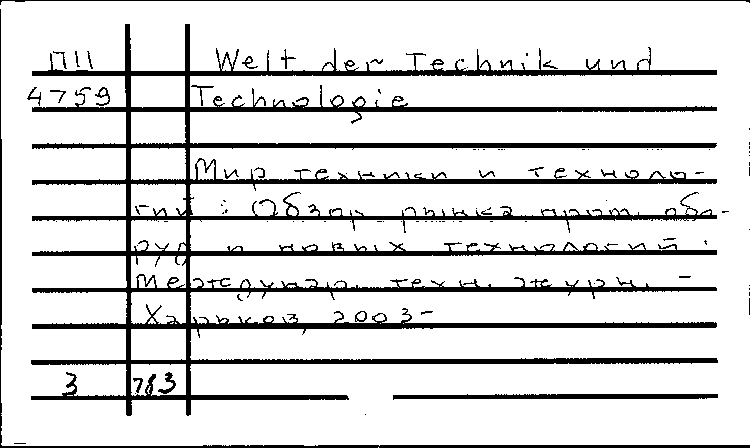 ПШ Welt der Technik und
4759 Technologie
Мир техники и техноло-
гий : Обзор рынка пром. обо-
руд и новых технологий :
Междунар. техн. журн. -
Харьков, 2003-
3 783